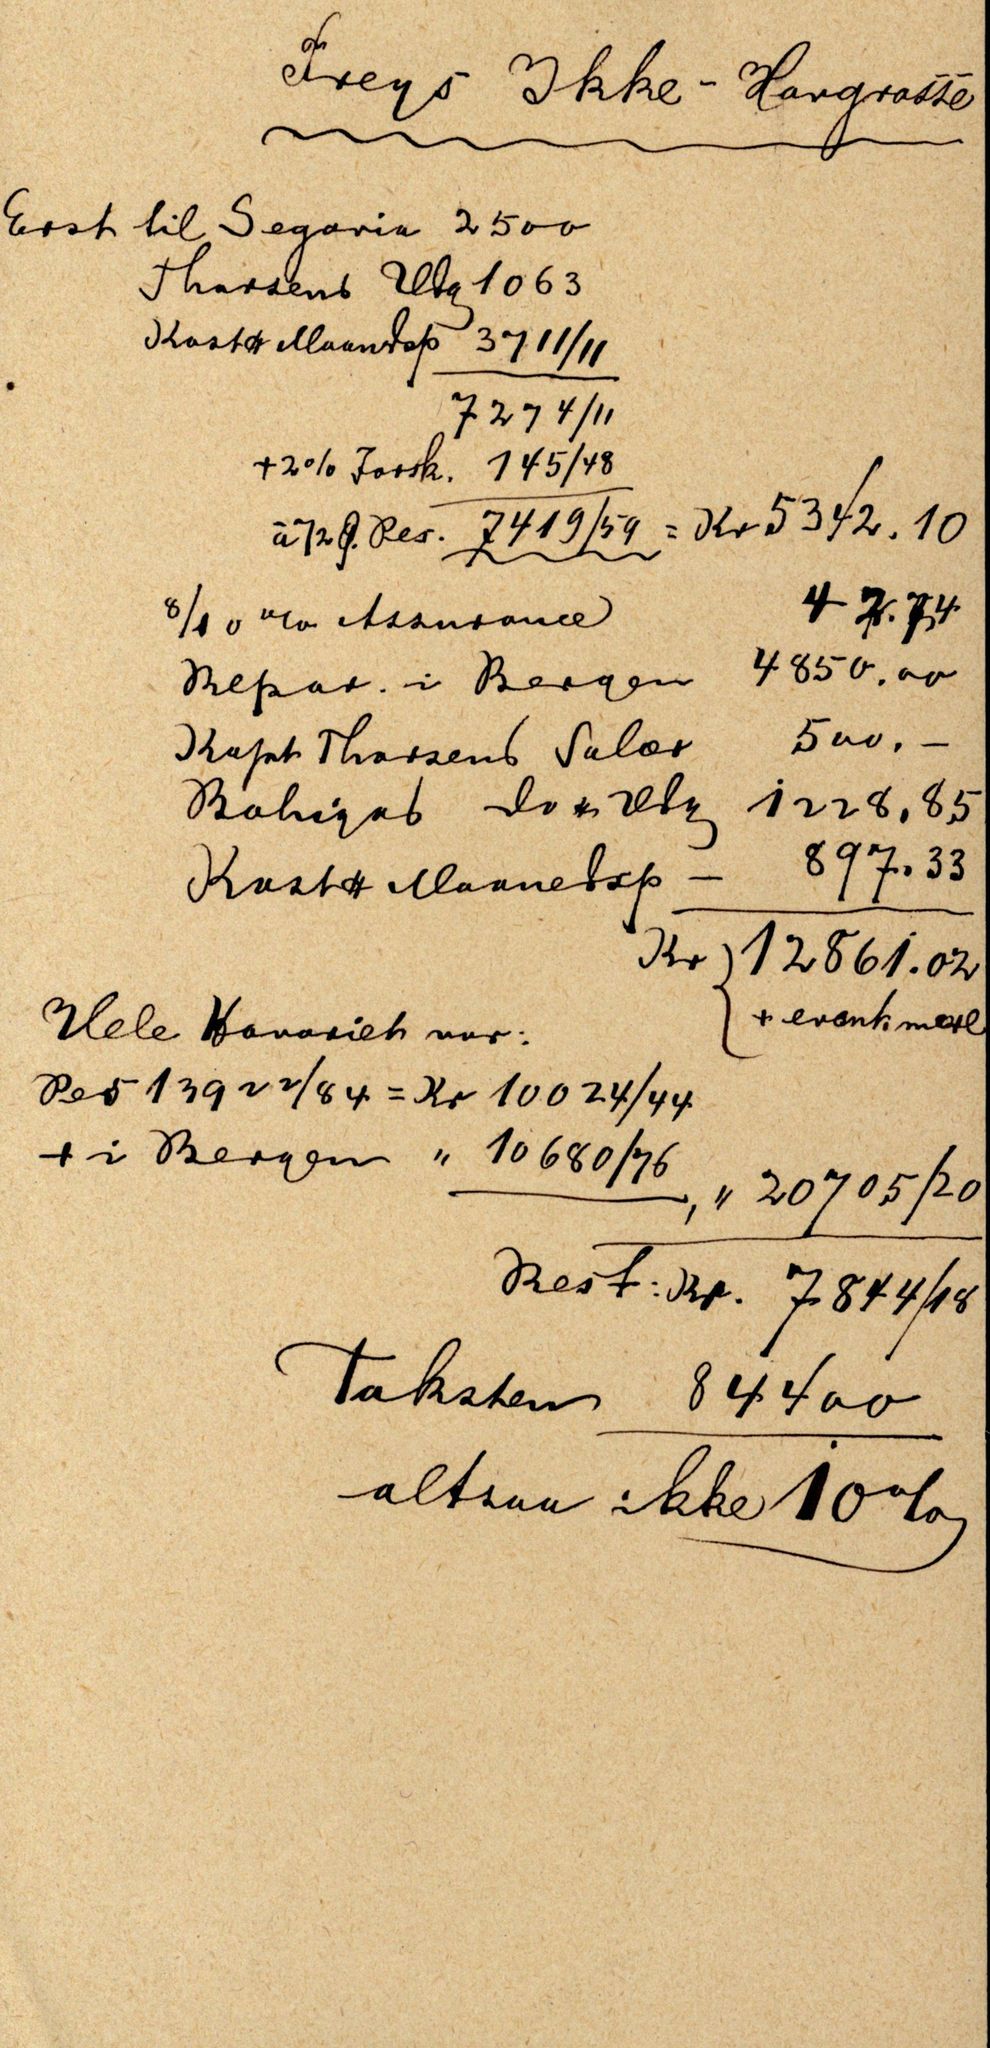 Freys Ikke-Havgrosse
Erst til Segovia 2500
Thorsens Udg 1063
Kost & Maandsp 3711/11
7274/11
+2% Forsk. 145/48
à 72 Ø. Pes. 7419/59 = Kr 5342.10
8/10 % Assurance 42.74
Repar. i Bergen 4850.00
Kapt Thorsens Salær 500.-
do & Udg 1228,85
Kost & Maanedsp - 897.33
Kr 12861.02
+ event mere
Hele Havariet var:
Pes 13922/84 = Kr 10024/44
+ i Bergen " 10680/76
" 20705/20
Rest: Kr. 7844/18
Taksten 84400
altsaa ikke 10%